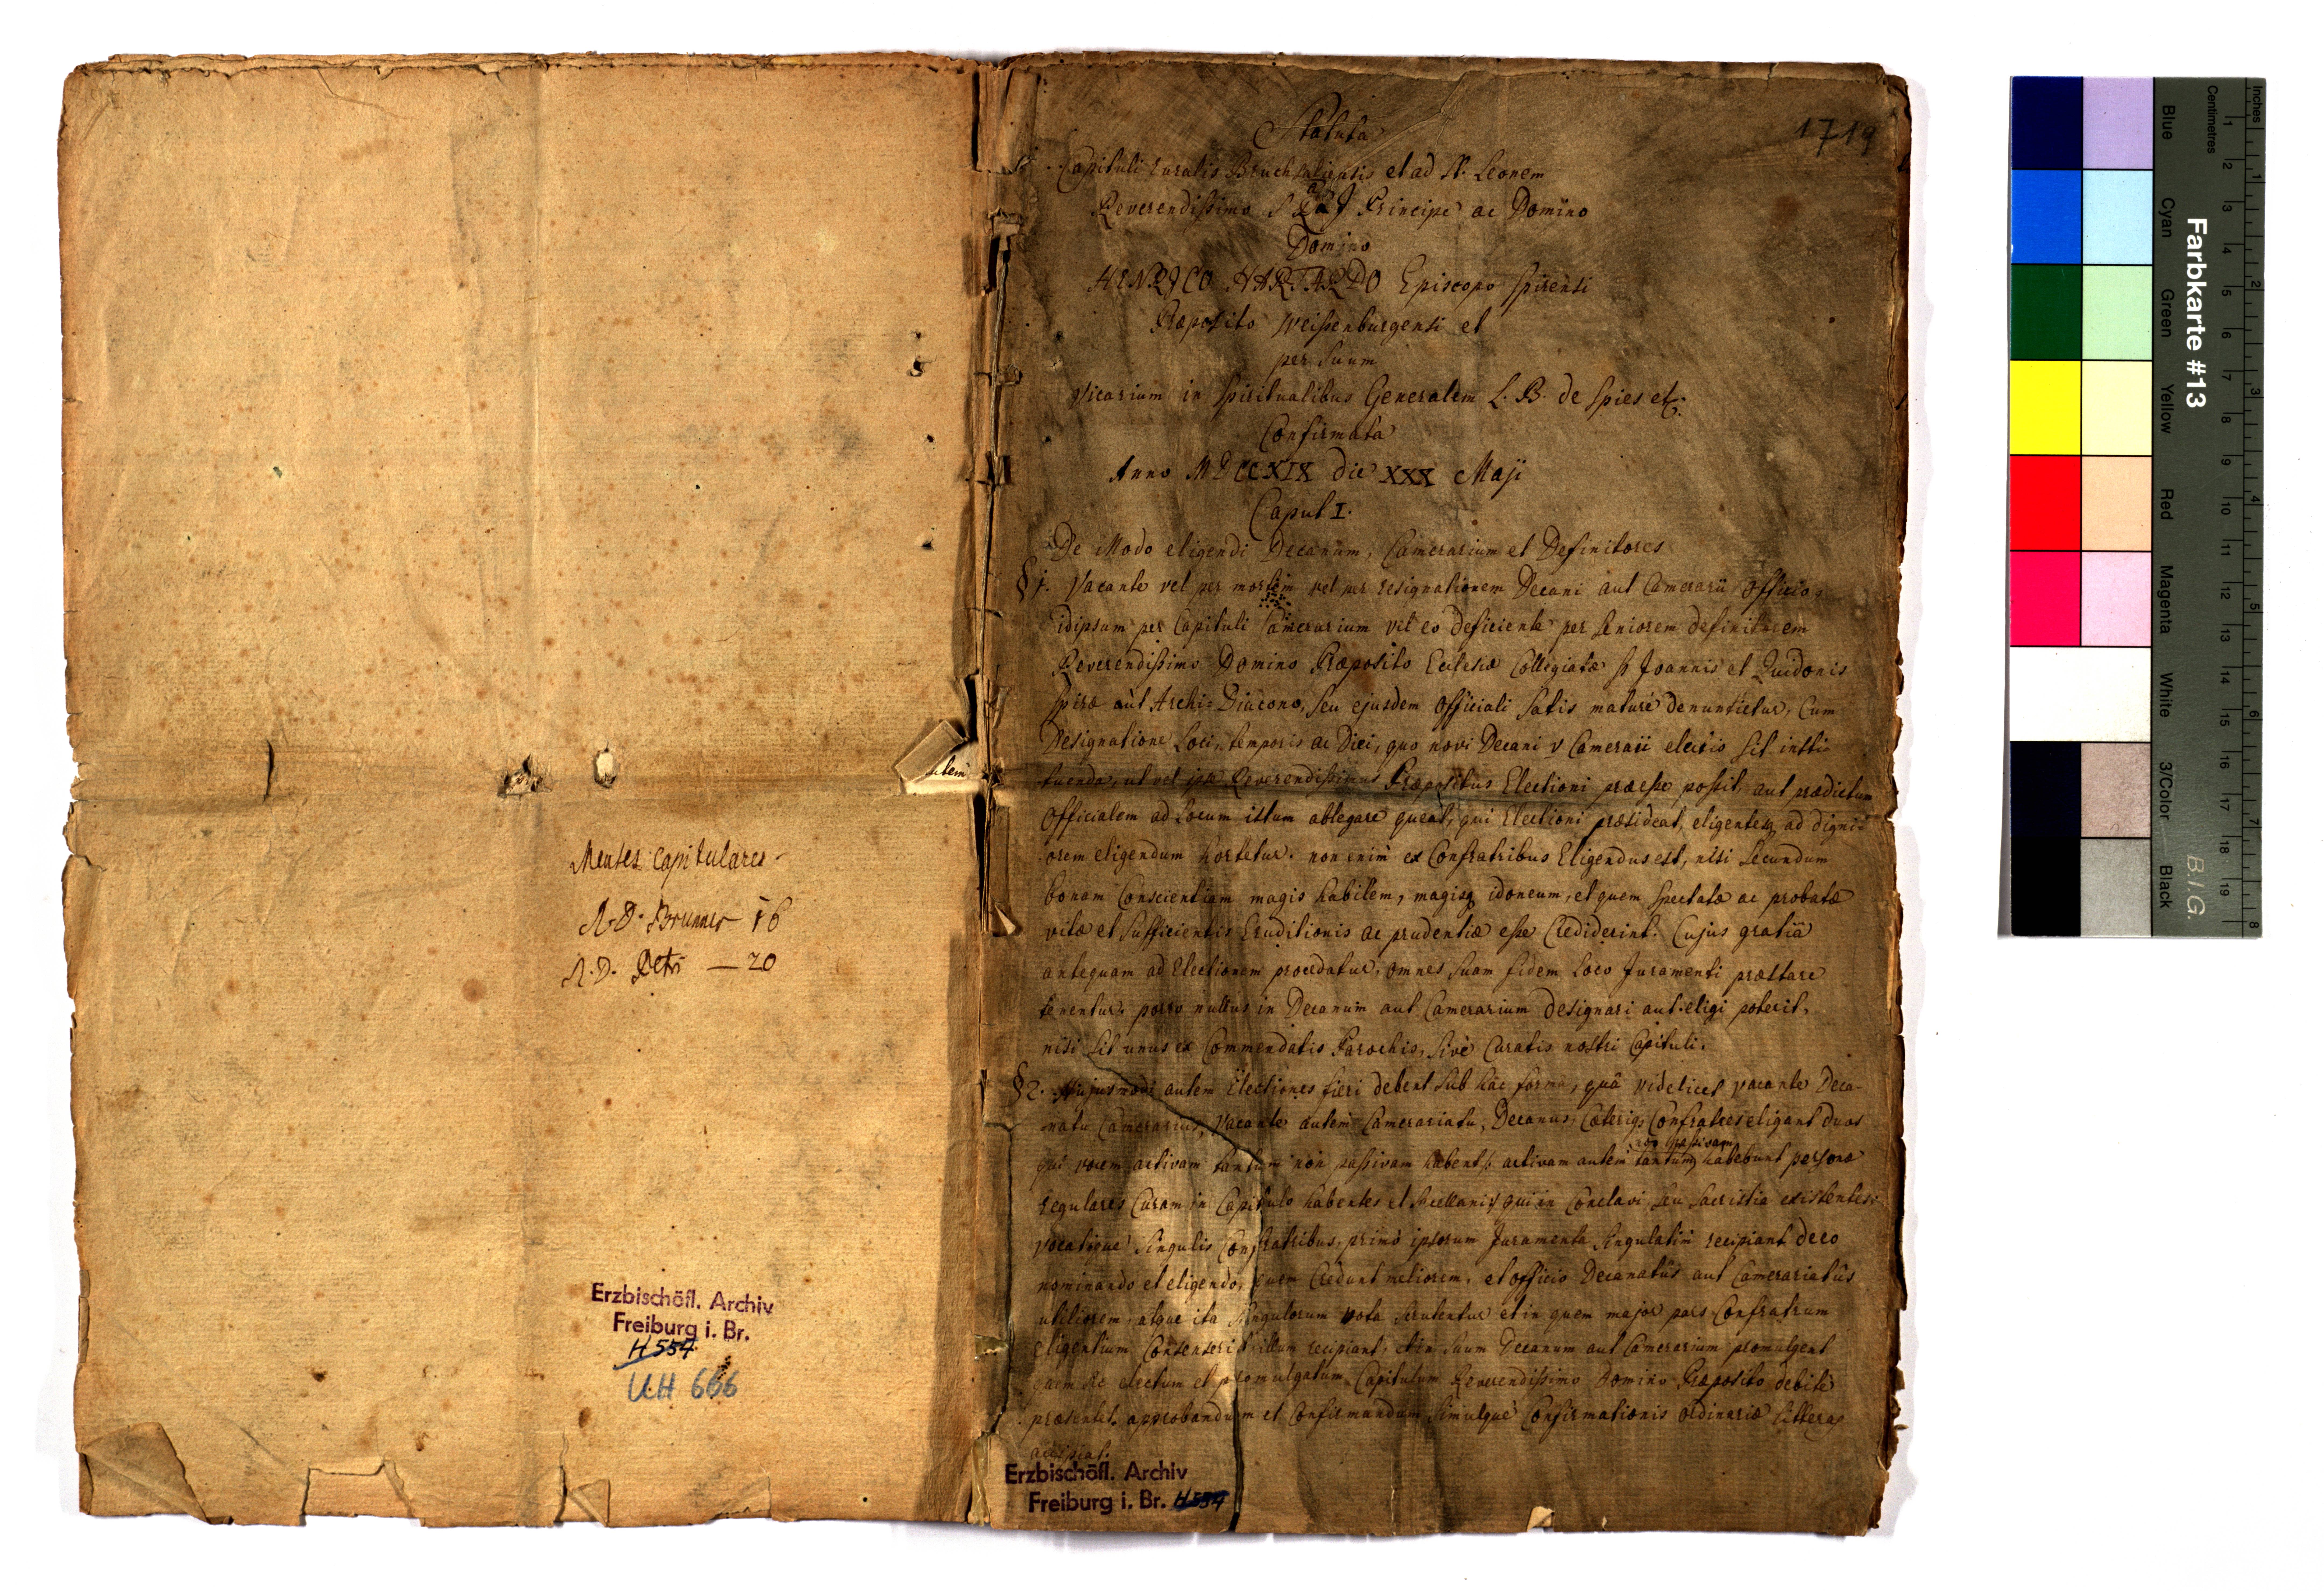 Menses capitulares
R. D. Brunner 16
R. D. Petri — 20
Erzbischöfl. Archiv
Freiburg i. Br.
H 554
UH 666
autem
1719
Statuta
Capituli ruralis Bruchsaliensis et ad St. Leonem
Reverendissimo S. R. J. Principe ac Domino
Domino
HENRICO HARTARDO Episcopo Spirensi
Præposito Weissenburgensi et
per suum
Vicarium in Spiritualibus Generalem L. B. de Spies etc.
Confirmata
Anno MDCCXIX die XXX Maji
Caput I.
De Modo eligendi Decanum, Camerarium et Definitores
§ 1. Vacante vel per mortem vel per resignationem Decani aut Camerarii Officio,
idipsum per Capituli Camerarium vel eo deficiente per seniorem definitorem
Reverendissimo Domino Præposito Ecclesiæ Collegiatæ St Joannis et Guidonis
Spiræ aut Archi-Diacono, seu ejusdem Officiali satis mature denuntietur, Cum
Designatione Loci, temporis ac Diei, quo novi Decani v Camerarii electio sit insti-
tuenda, ut vel ipse Reverendissimus Præpositus Electioni præesse possit, aut prædictum
Officialem ad Locum istum ablegare queat, qui Electioni præsideat, eligentesq ad digni-
orem eligendum hortetur. non enim ex Confratribus Eligendus est, nisi secundum
bonam Conscientiam magis habilem, magisq idoneum, et quem spectatæ ac probatæ
vitæ et sufficientis Eruditionis ac prudentiæ esse Crediderint. Cujus gratiâ
antequam ad Electionem procedatur, omnes suam fidem Loco Juramenti præstare
tenentur. porro nullus in Decanum aut Camerarium designari aut eligi poterit,
nisi sit unus ex Commendatis Parochis, sive Curatis nostri Capituli.
§ 2. Hujusmodi autem Electiones fieri debent sub hâc formâ, quâ videlicet vacante Deca-
natu Camerarius, Vacante autem Camerariatu, Decanus, Cæteriq Confratres eligant duos
non passivam
qui vocem activam tantum non passivam habent: activam autem tantum habebunt personæ
regulares Curam in Capitulo habentes et Sacellani, qui in Conclavi seu Sacristia existentes
vocatisque singulis Confratribus primò ipsorum Juramenta singulatim recipiant de eo
nominando et eligendo, quem Credunt meliorem, et officio Decanatûs aut Camerariatûs
utiliorem, atque ita singulorum vota scrutentur et in quem major pars Confratrum
eligentium Consenserit illum recipiant, et in suum Decanum aut Camerarium promulgent
quem sic electum et promulgatum Capitulum Reverendissimo Domino Præposito debitè
præsentet approbandum et Confirmandum simulque Confirmationis ordinariæ litteras
accipiat.
Erzbischöfl. Archiv
Freiburg i. Br. H 554
Farbkarte #13
B.I.G.
Blue
Cyan
Green
Yellow
Red
Magenta
White
3/Color
Black
Centimetres
Inches
1 2 3 4 5 6 7 8 9 10 11 12 13 14 15 16 17 18 19
1 2 3 4 5 6 7 8